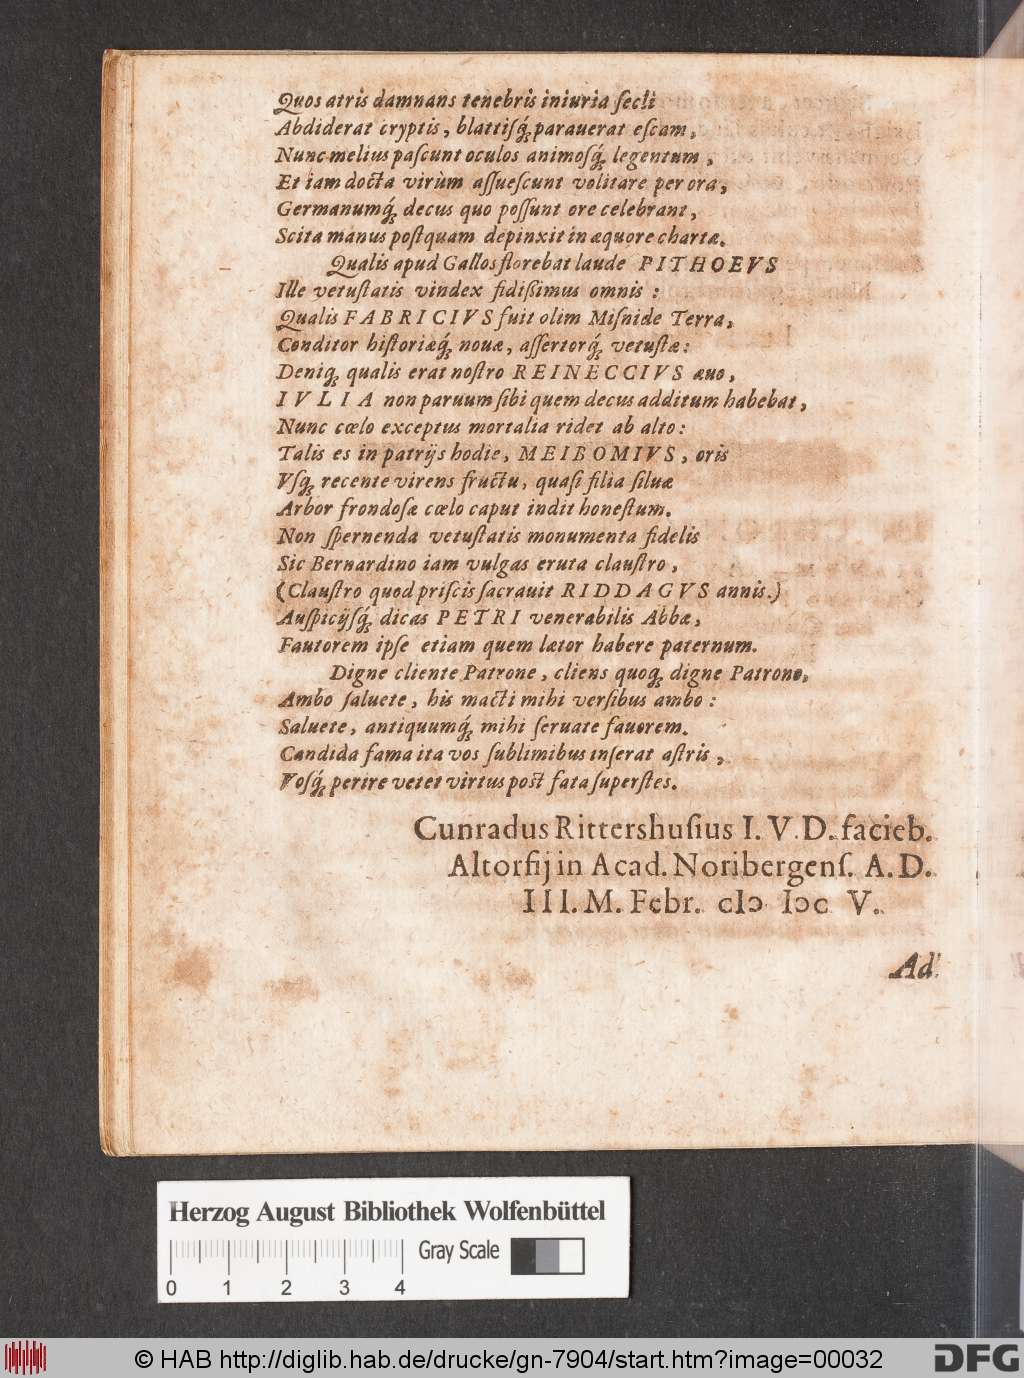 Quos atris damnans tenebris iniuria ſecli
Abdiderat cryptis, blattiſq́; parauerat eſcam,
Nunc melius paſcunt oculos animoſq́; legentum,
Et iam docta virùm aſſueſcunt volitare per ora,
Germanumq́; decus quo poſſunt ore celebrant,
Scita manus poſtquam depinxit in æquore chartæ.
Qualis apud Gallos florebat laude PITHOEVS
Ille vetuſtatis vindex fidiſſimus omnis:
Qualis FABRICIVS fuit olim Miſnide Terra,
Conditor hiſtoriæq́; nouæ, aſſertorq́; vetuſtæ:
Deniq; qualis erat noſtro REINECCIVS æuo,
IVLIA non paruum ſibi quem decus additum habebat,
Nunc cœlo exceptus mortalia ridet ab alto:
Talis es in patrijs hodie, MEIBOMIVS, oris
Vſq; recente virens fructu, quaſi filia ſiluæ
Arbor frondoſæ cœlo caput indit honeſtum.
Non ſpernenda vetuſtatis monumenta fidelis
Sic Bernardino iam vulgas eruta clauſtro,
(Clauſtro quod priſcis ſacrauit RIDDAGVS annis.)
Auſpicijſq́; dicas PETRI venerabilis Abbæ,
Fautorem ipſe etiam quem lætor habere paternum.
Digne cliente Patrone, cliens quoq; digne Patrono,
Ambo ſaluete, his macti mihi verſibus ambo:
Saluete, antiquumq́; mihi ſeruate fauorem.
Candida fama ita vos ſublimibus inſerat aſtris,
Voſq́; perire vetet virtus poſt fata ſuperſtes.
Cunradus Rittershuſius I. V. D. facieb.
Altorfij in Acad. Noribergenſ. A. D.
III. M. Febr. cIɔ Iɔc V.
Ad
Herzog August Bibliothek Wolfenbüttel
Gray Scale
0 1 2 3 4
© HAB http://diglib.hab.de/drucke/gn-7904/start.htm?image=00032
DFG